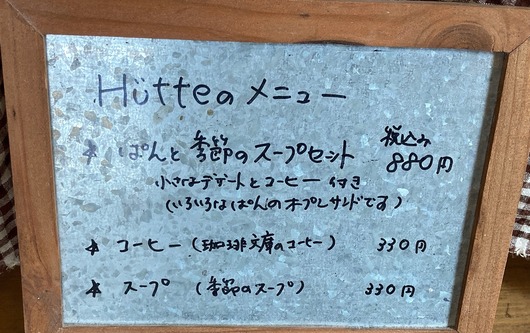 Hütteのメニュー
☆ ぱんと季節のスープセット 税込み 880円
小さなデザートとコーヒー付き
(いろいろなぱんのオープンサンドです)
☆ コーヒー(珈琲文庫のコーヒー) 330円
☆ スープ (季節のスープ) 330円